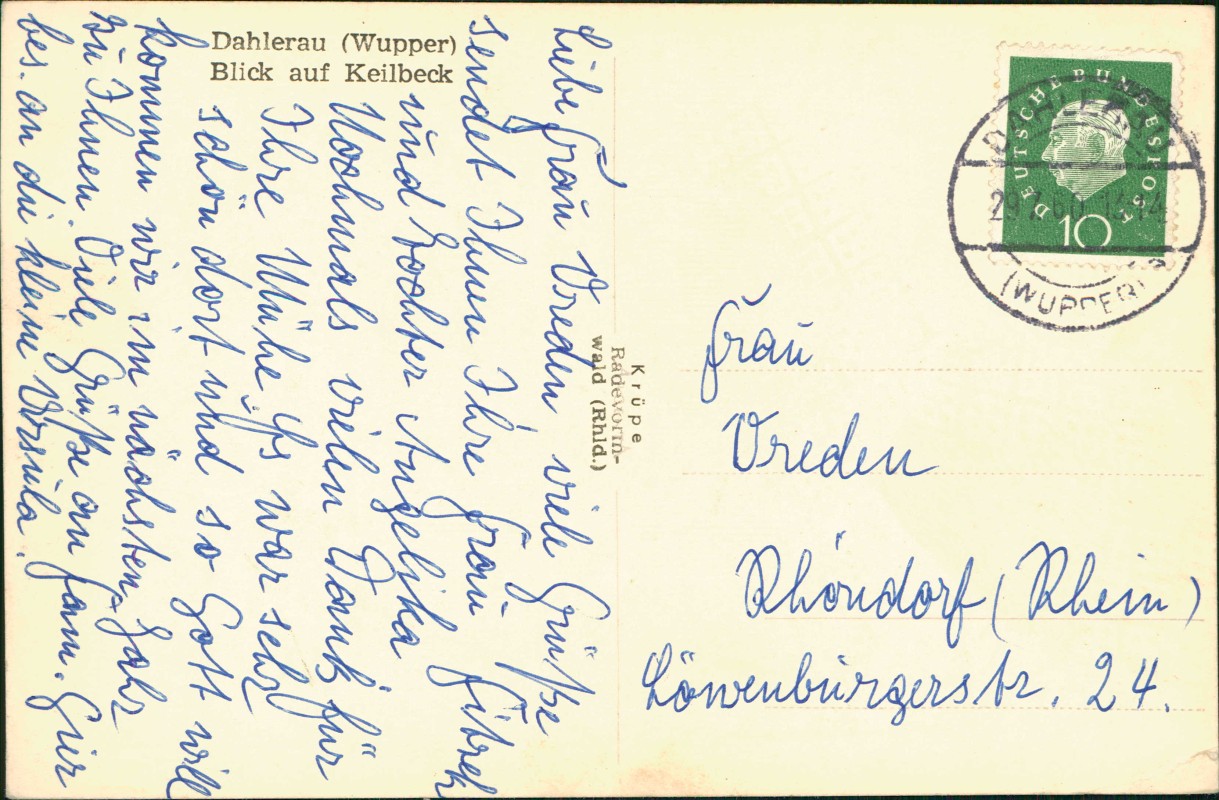 Dahlerau (Wupper)
Blick auf Keilbeck
Liebe Frau Vreden viele Grüße
sendet Ihnen Ihre Frau Fitzek
und Tochter Angelika
Nochmals vielen Dank für
Ihre Mühe. Es war sehr
schön dort und so Gott will
kommen wir im nächsten Jahr
zu Ihnen. Viele Grüße an Fam. Gier
bes. an die kleine Ursula.
Krüpe
Radevorm-
wald (Rhld.)
DEUTSCHE BUNDESPOST
10
DAHLERAU
29.7.60.13-14
(WUPPER)
Frau
Vreden
Rhöndorf (Rhein)
Löwenburgerstr. 24.